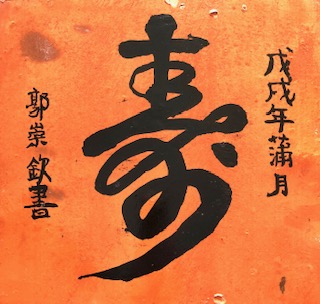 戊戌年蒲月
寿
郭崇欽書